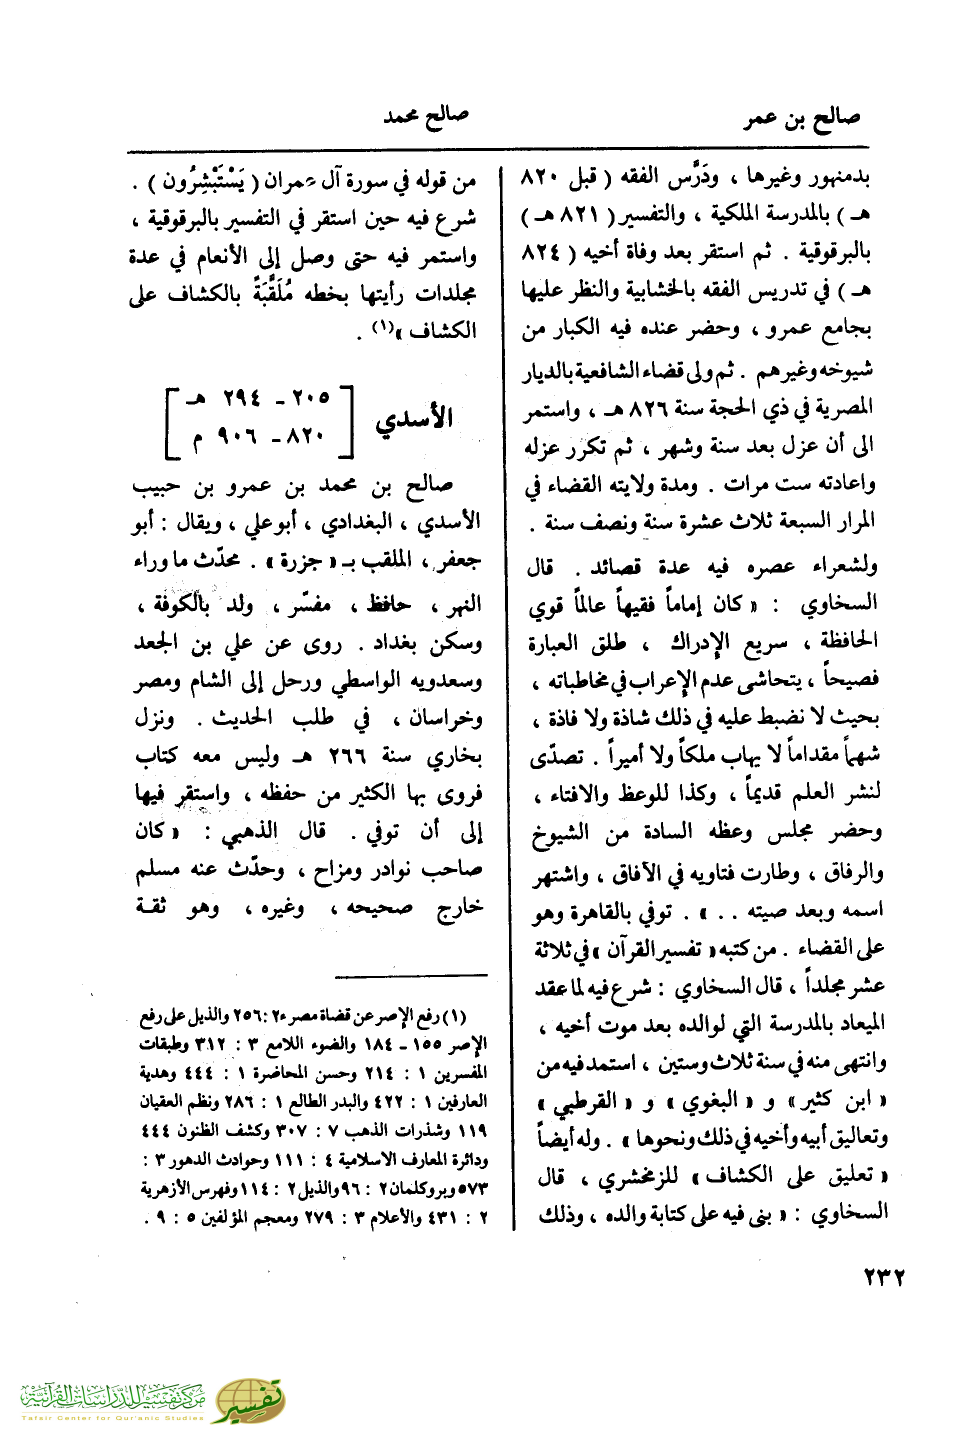 صالح بن عمر
صالح محمد
بدمنهور وغيرها ، ودَرَّس الفقه ( قبل ٨٢٠
هـ ) بالمدرسة الملكية ، والتفسير ( ٨٢١ هـ )
بالبرقوقية . ثم استقر بعد وفاة أخيه ( ٨٢٤
هـ ) في تدريس الفقه بالخشابية والنظر عليها
بجامع عمرو ، وحضر عنده فيه الكبار من
شيوخه وغيرهم . ثم ولى قضاء الشافعية بالديار
المصرية في ذي الحجة سنة ٨٢٦ هـ ، واستمر
الى أن عزل بعد سنة وشهر ، ثم تكرر عزله
واعادته ست مرات . ومدة ولايته القضاء في
المرار السبعة ثلاث عشرة سنة ونصف سنة .
ولشعراء عصره فيه عدة قصائد . قال
السخاوي : « كان إماماً فقيهاً عالماً قوي
الحافظة ، سريع الإدراك ، طلق العبارة
فصيحاً ، يتحاشى عدم الإعراب في مخاطباته ،
بحيث لا نضبط عليه في ذلك شاذة ولا فاذة ،
شهماً مقداماً لا يهاب ملكاً ولا أميراً . تصدّى
لنشر العلم قديماً ، وكذا للوعظ والافتاء ،
وحضر مجلس وعظه السادة من الشيوخ
والرفاق ، وطارت فتاويه في الآفاق ، واشتهر
اسمه وبعد صيته . . » . توفي بالقاهرة وهو
على القضاء . من كتبه « تفسير القرآن » في ثلاثة
عشر مجلداً ، قال السخاوي : شرع فيه لما عقد
الميعاد بالمدرسة التي لوالده بعد موت أخيه ،
وانتهى منه في سنة ثلاث وستين ، استمد فيه من
« ابن كثير » و « البغوي » و « القرطبي »
وتعاليق أبيه وأخيه في ذلك ونحوها » . وله أيضاً
« تعليق على الكشاف » للزمخشري ، قال
السخاوي : « بنى فيه على كتابة والده ، وذلك
من قوله في سورة آل عمران ( يَسْتَبْشِرُون ) .
شرع فيه حين استقر في التفسير بالبرقوقية ،
واستمر فيه حتى وصل إلى الأنعام في عدة
مجلدات رأيتها بخطه مُلَقَّبَةً بالكشاف على
الكشاف »(١) .
الأسدي [ ٢٠٥ - ٢٩٤ هـ
٨٢٠ - ٩٠٦ م ]
صالح بن محمد بن عمرو بن حبيب
الأسدي ، البغدادي ، أبو علي ، ويقال : أبو
جعفر ، الملقب بـ « جزرة » . محدّث ما وراء
النهر ، حافظ ، مفسّر ، ولد بالكوفة ،
وسكن بغداد . روى عن علي بن الجعد
وسعدويه الواسطي ورحل إلى الشام ومصر
وخراسان ، في طلب الحديث . ونزل
بخاري سنة ٢٦٦ هـ وليس معه كتاب
فروى بها الكثير من حفظه ، واستقر فيها
إلى أن توفي . قال الذهبي : « كان
صاحب نوادر ومزاح ، وحدّث عنه مسلم
خارج صحيحه ، وغيره ، وهو ثقة
(١) رفع الإصر عن قضاة مصر ٢ : ٢٥٦ والذيل على رفع
الإصر ١٥٥ - ١٨٤ والضوء اللامع ٣ : ٣١٢ وطبقات
المفسرين ١ : ٢١٤ وحسن المحاضرة ١ : ٤٤٤ وهدية
العارفين ١ : ٤٢٢ والبدر الطالع ١ : ٢٨٦ ونظم العقيان
١١٩ وشذرات الذهب ٧ : ٣٠٧ وكشف الظنون ٤٤٤
ودائرة المعارف الاسلامية ٤ : ١١١ وحوادث الدهور ٣ :
٥٧٣ وبروكلمان ٢ : ٩٦ والذيل ٢ : ١١٤ وفهرس الأزهرية
٢ : ٤٣١ والأعلام ٣ : ٢٧٩ ومعجم المؤلفين ٥ : ٩ .
٢٣٢
مركز تفسير للدراسات القرآنية
Tafsir Center for Qur'anic Studies
تفسير